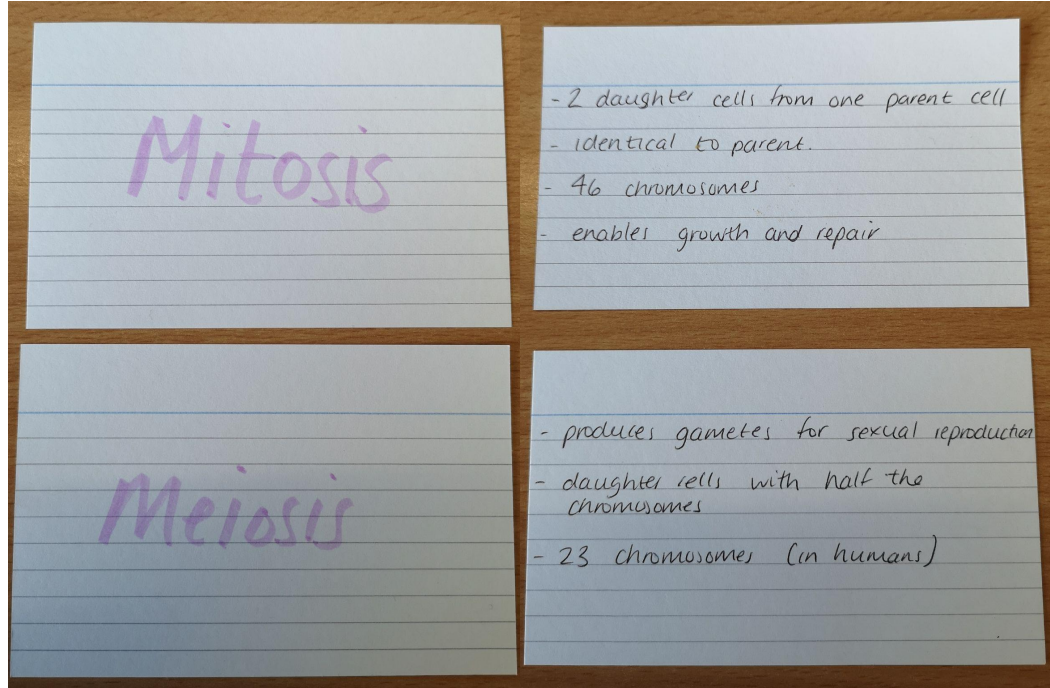 Mitosis
- 2 daughter cells from one parent cell
- identical to parent.
- 46 chromosomes
- enables growth and repair
Meiosis
- produces gametes for sexual reproduction
- daughter cells with half the
chromosomes
- 23 chromosomes (in humans)